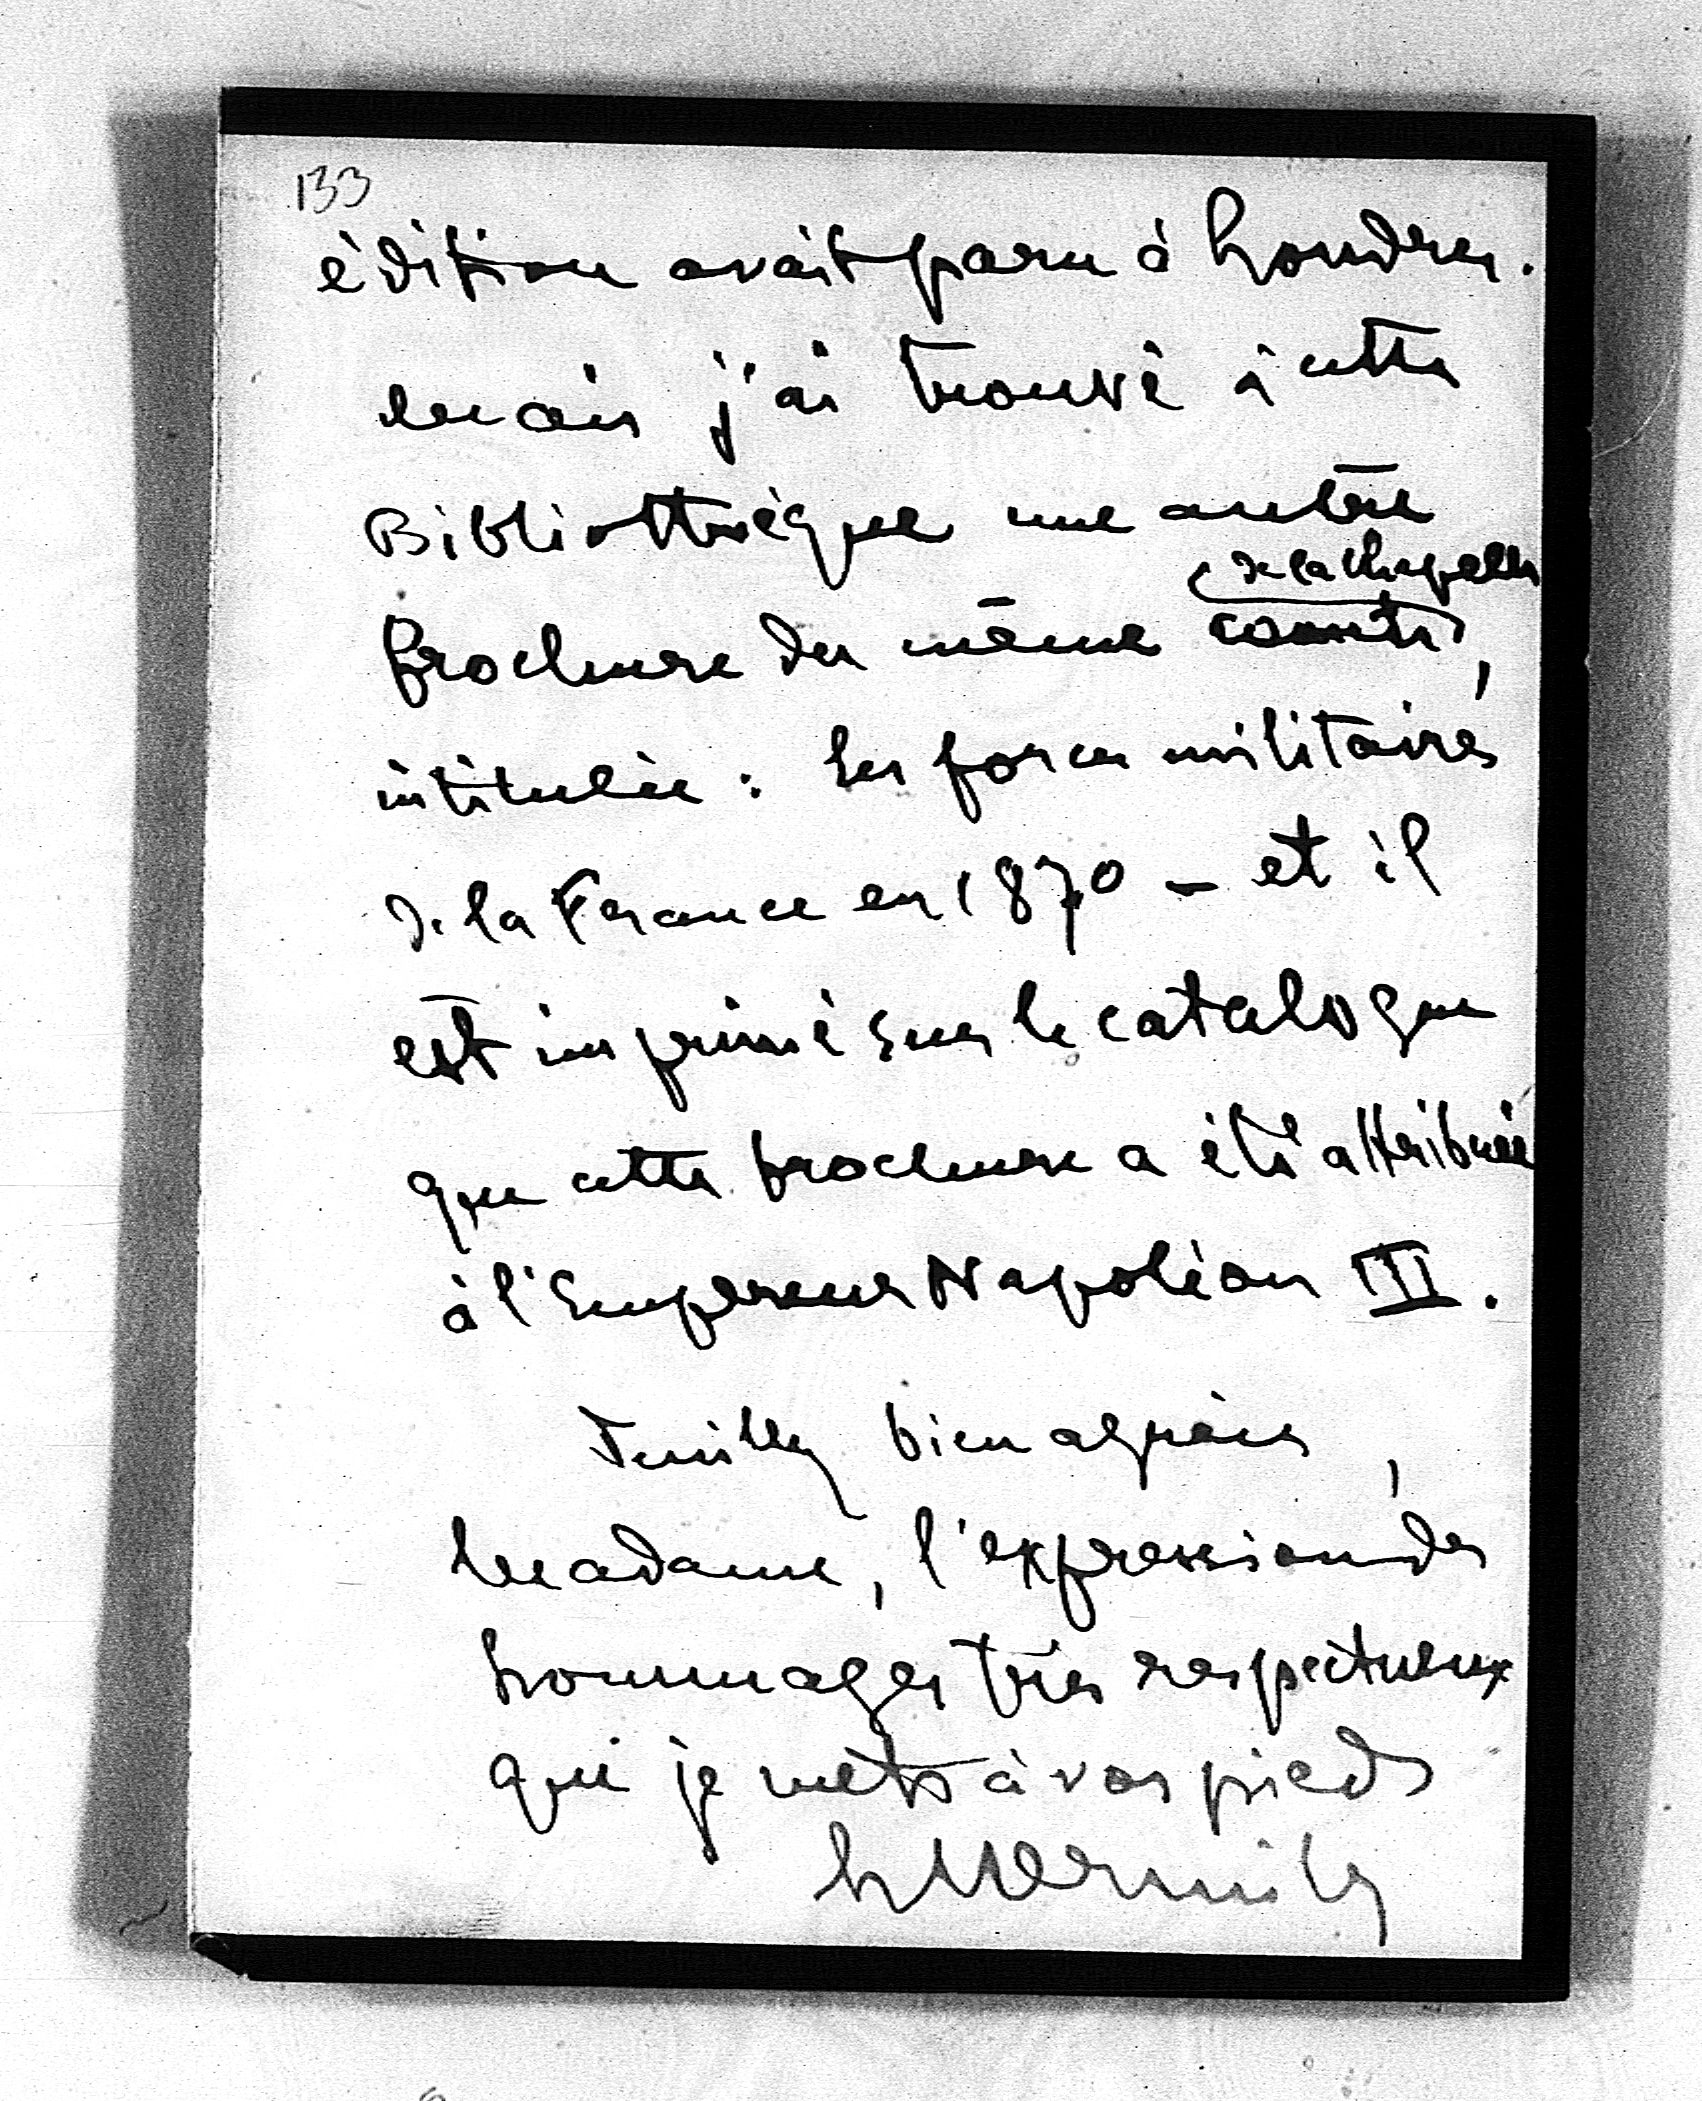 133
édition avait paru à Londres.
mais j'ai trouvé à cette
Bibliothèque une autre
(de la Chapelle
brochure du même comte),
intitulée : Les forces militaires
de la France en 1870 - et il
est imprimé sur le catalogue
que cette brochure a été attribuée
à l'Empereur Napoléon III.
Veuillez bien agréer,
Madame, l'expression des
hommages très respectueux
que je mets à vos pieds